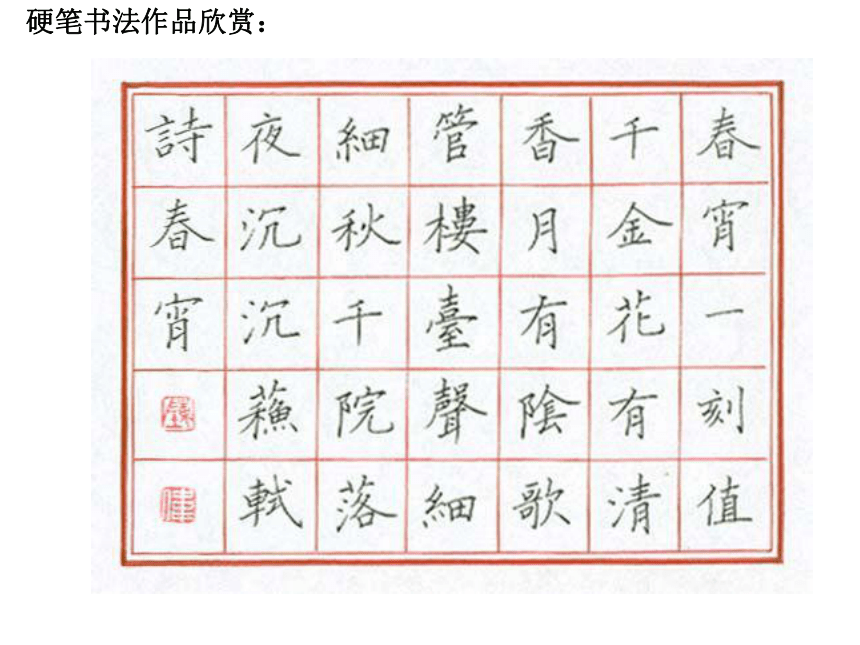 硬笔书法作品欣赏：
春宵一刻值
千金花有清
香月有陰歌
管樓臺聲細
細秋千院落
夜沉沉蘇軾
詩春宵